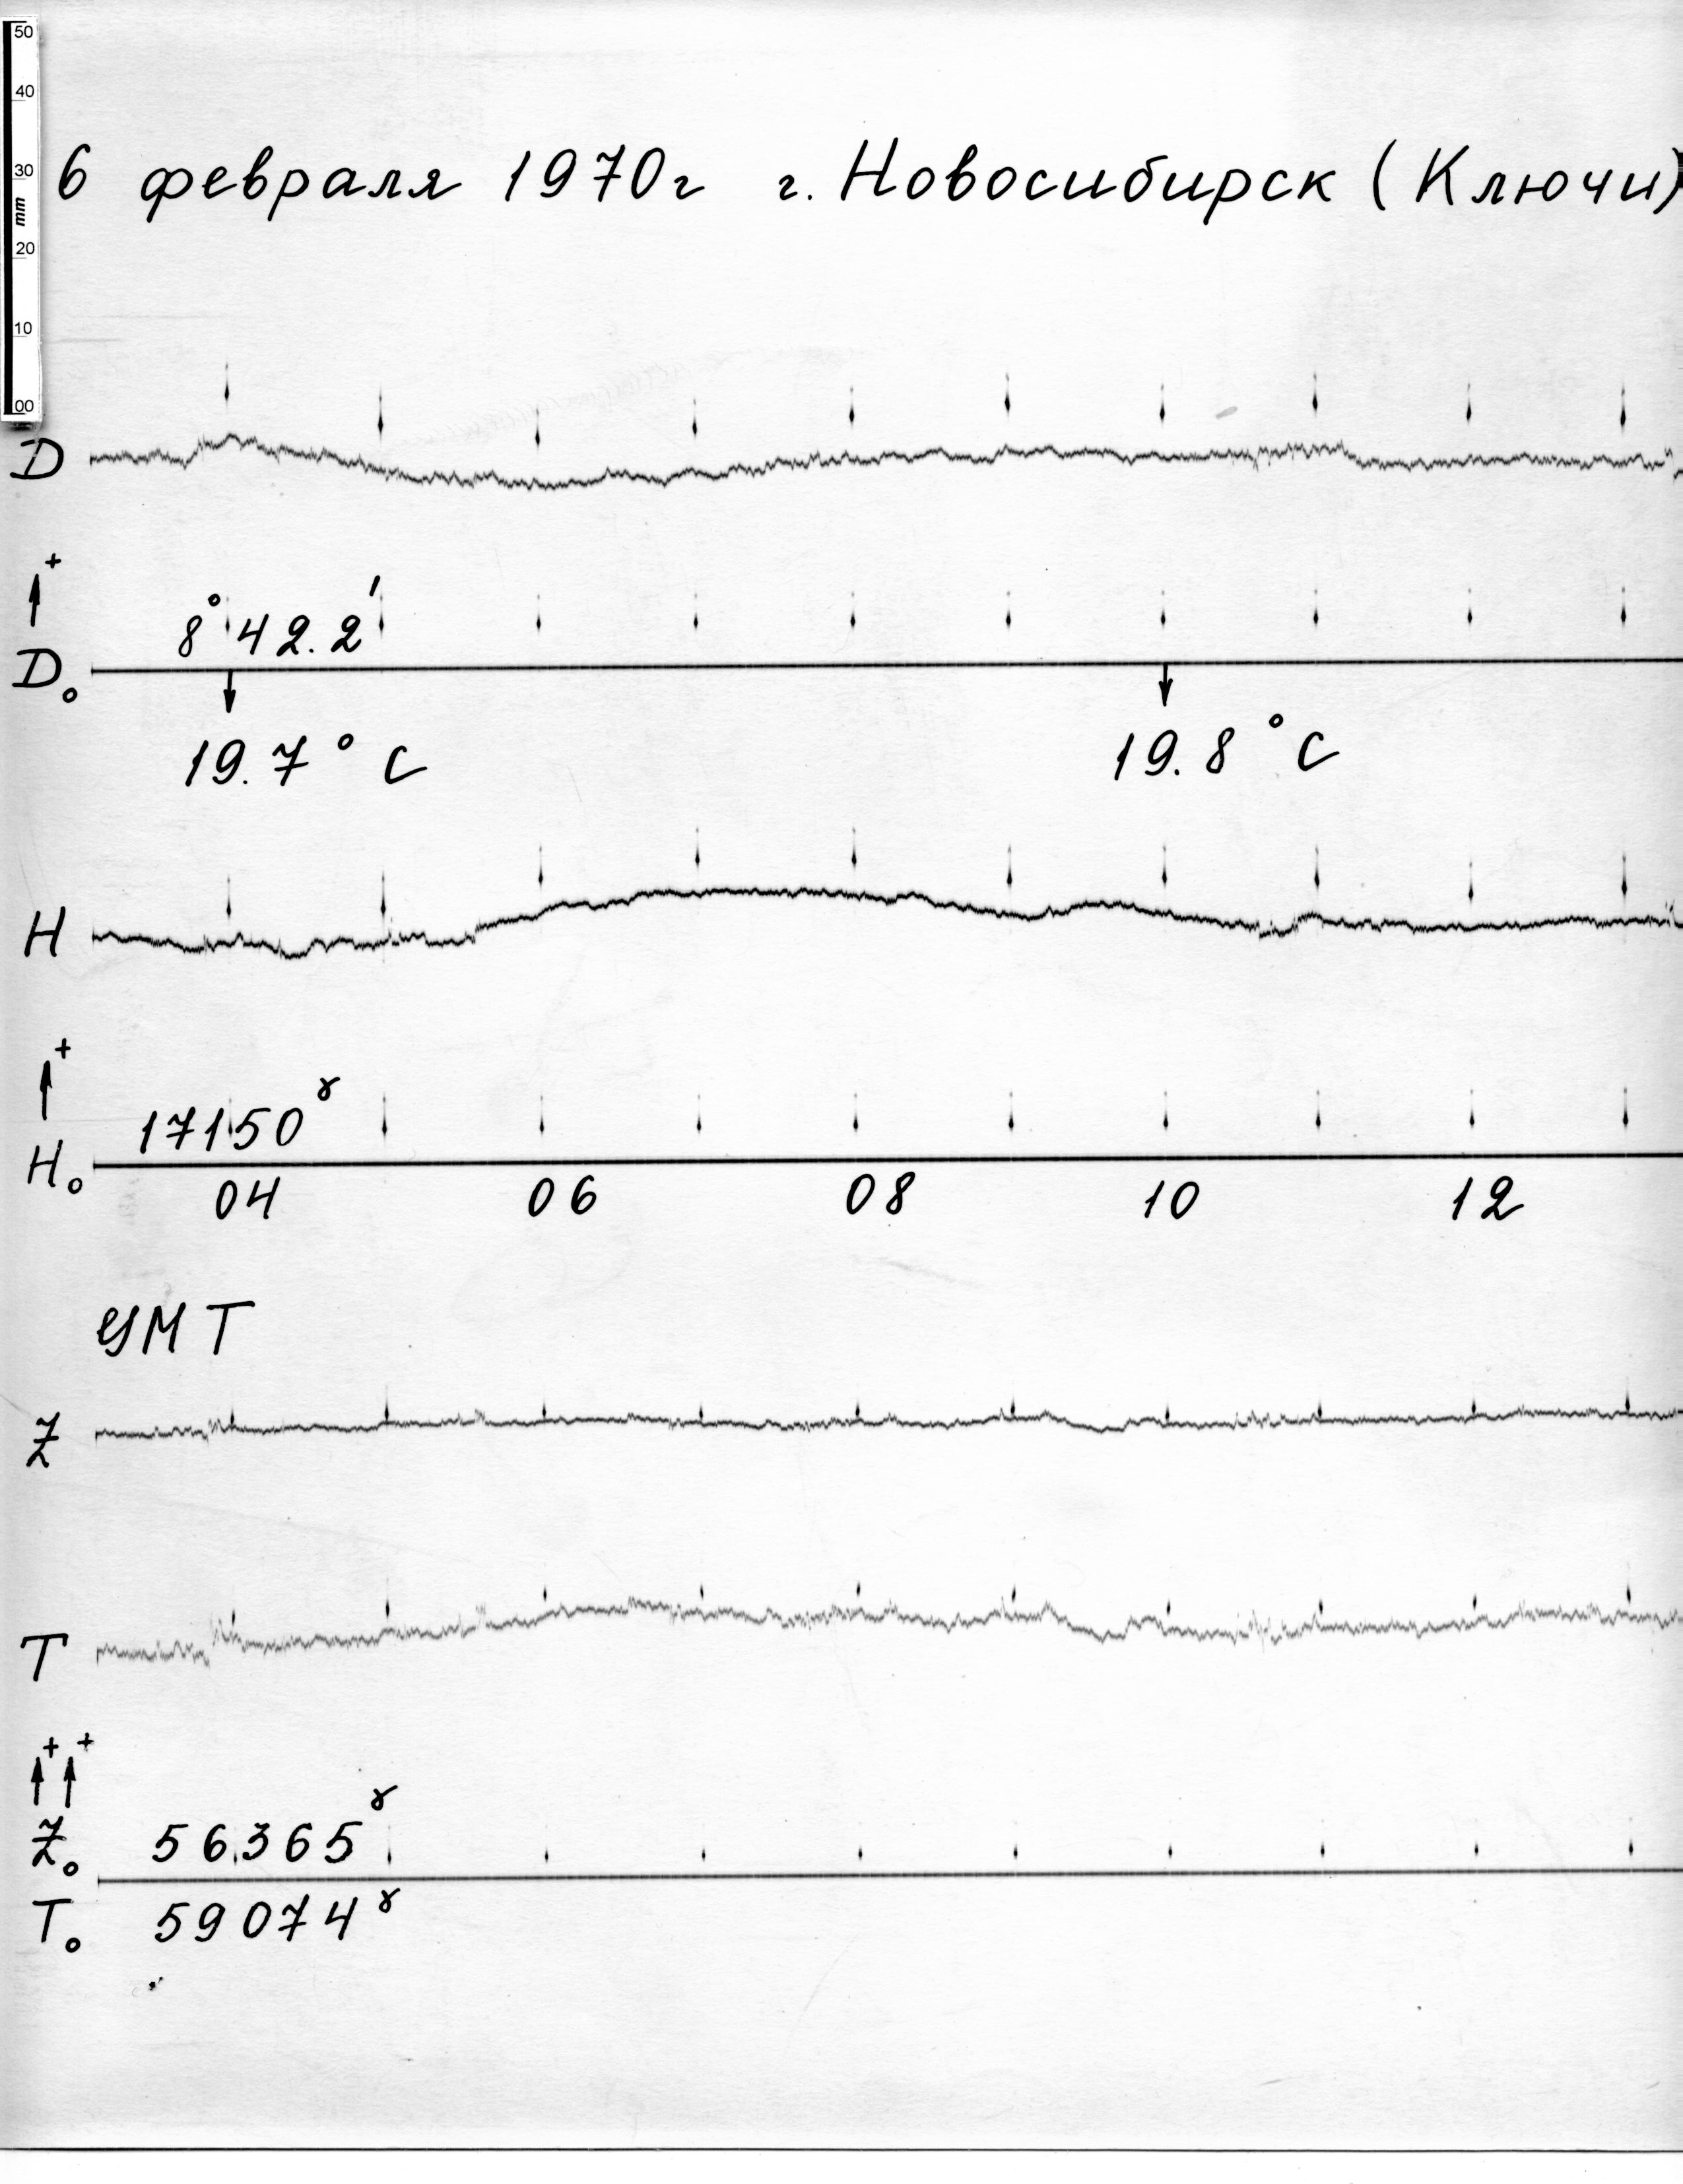 50
40
30
mm
20
10
00
6 февраля 1970г г. Новосибирск (Ключи)
D
+
8°42.2′
D₀
19.7°C 19.8°C
H
+
17150γ
H₀
04 06 08 10 12
УМТ
Z
T
+ +
56365γ
Z₀
T₀ 59074γ